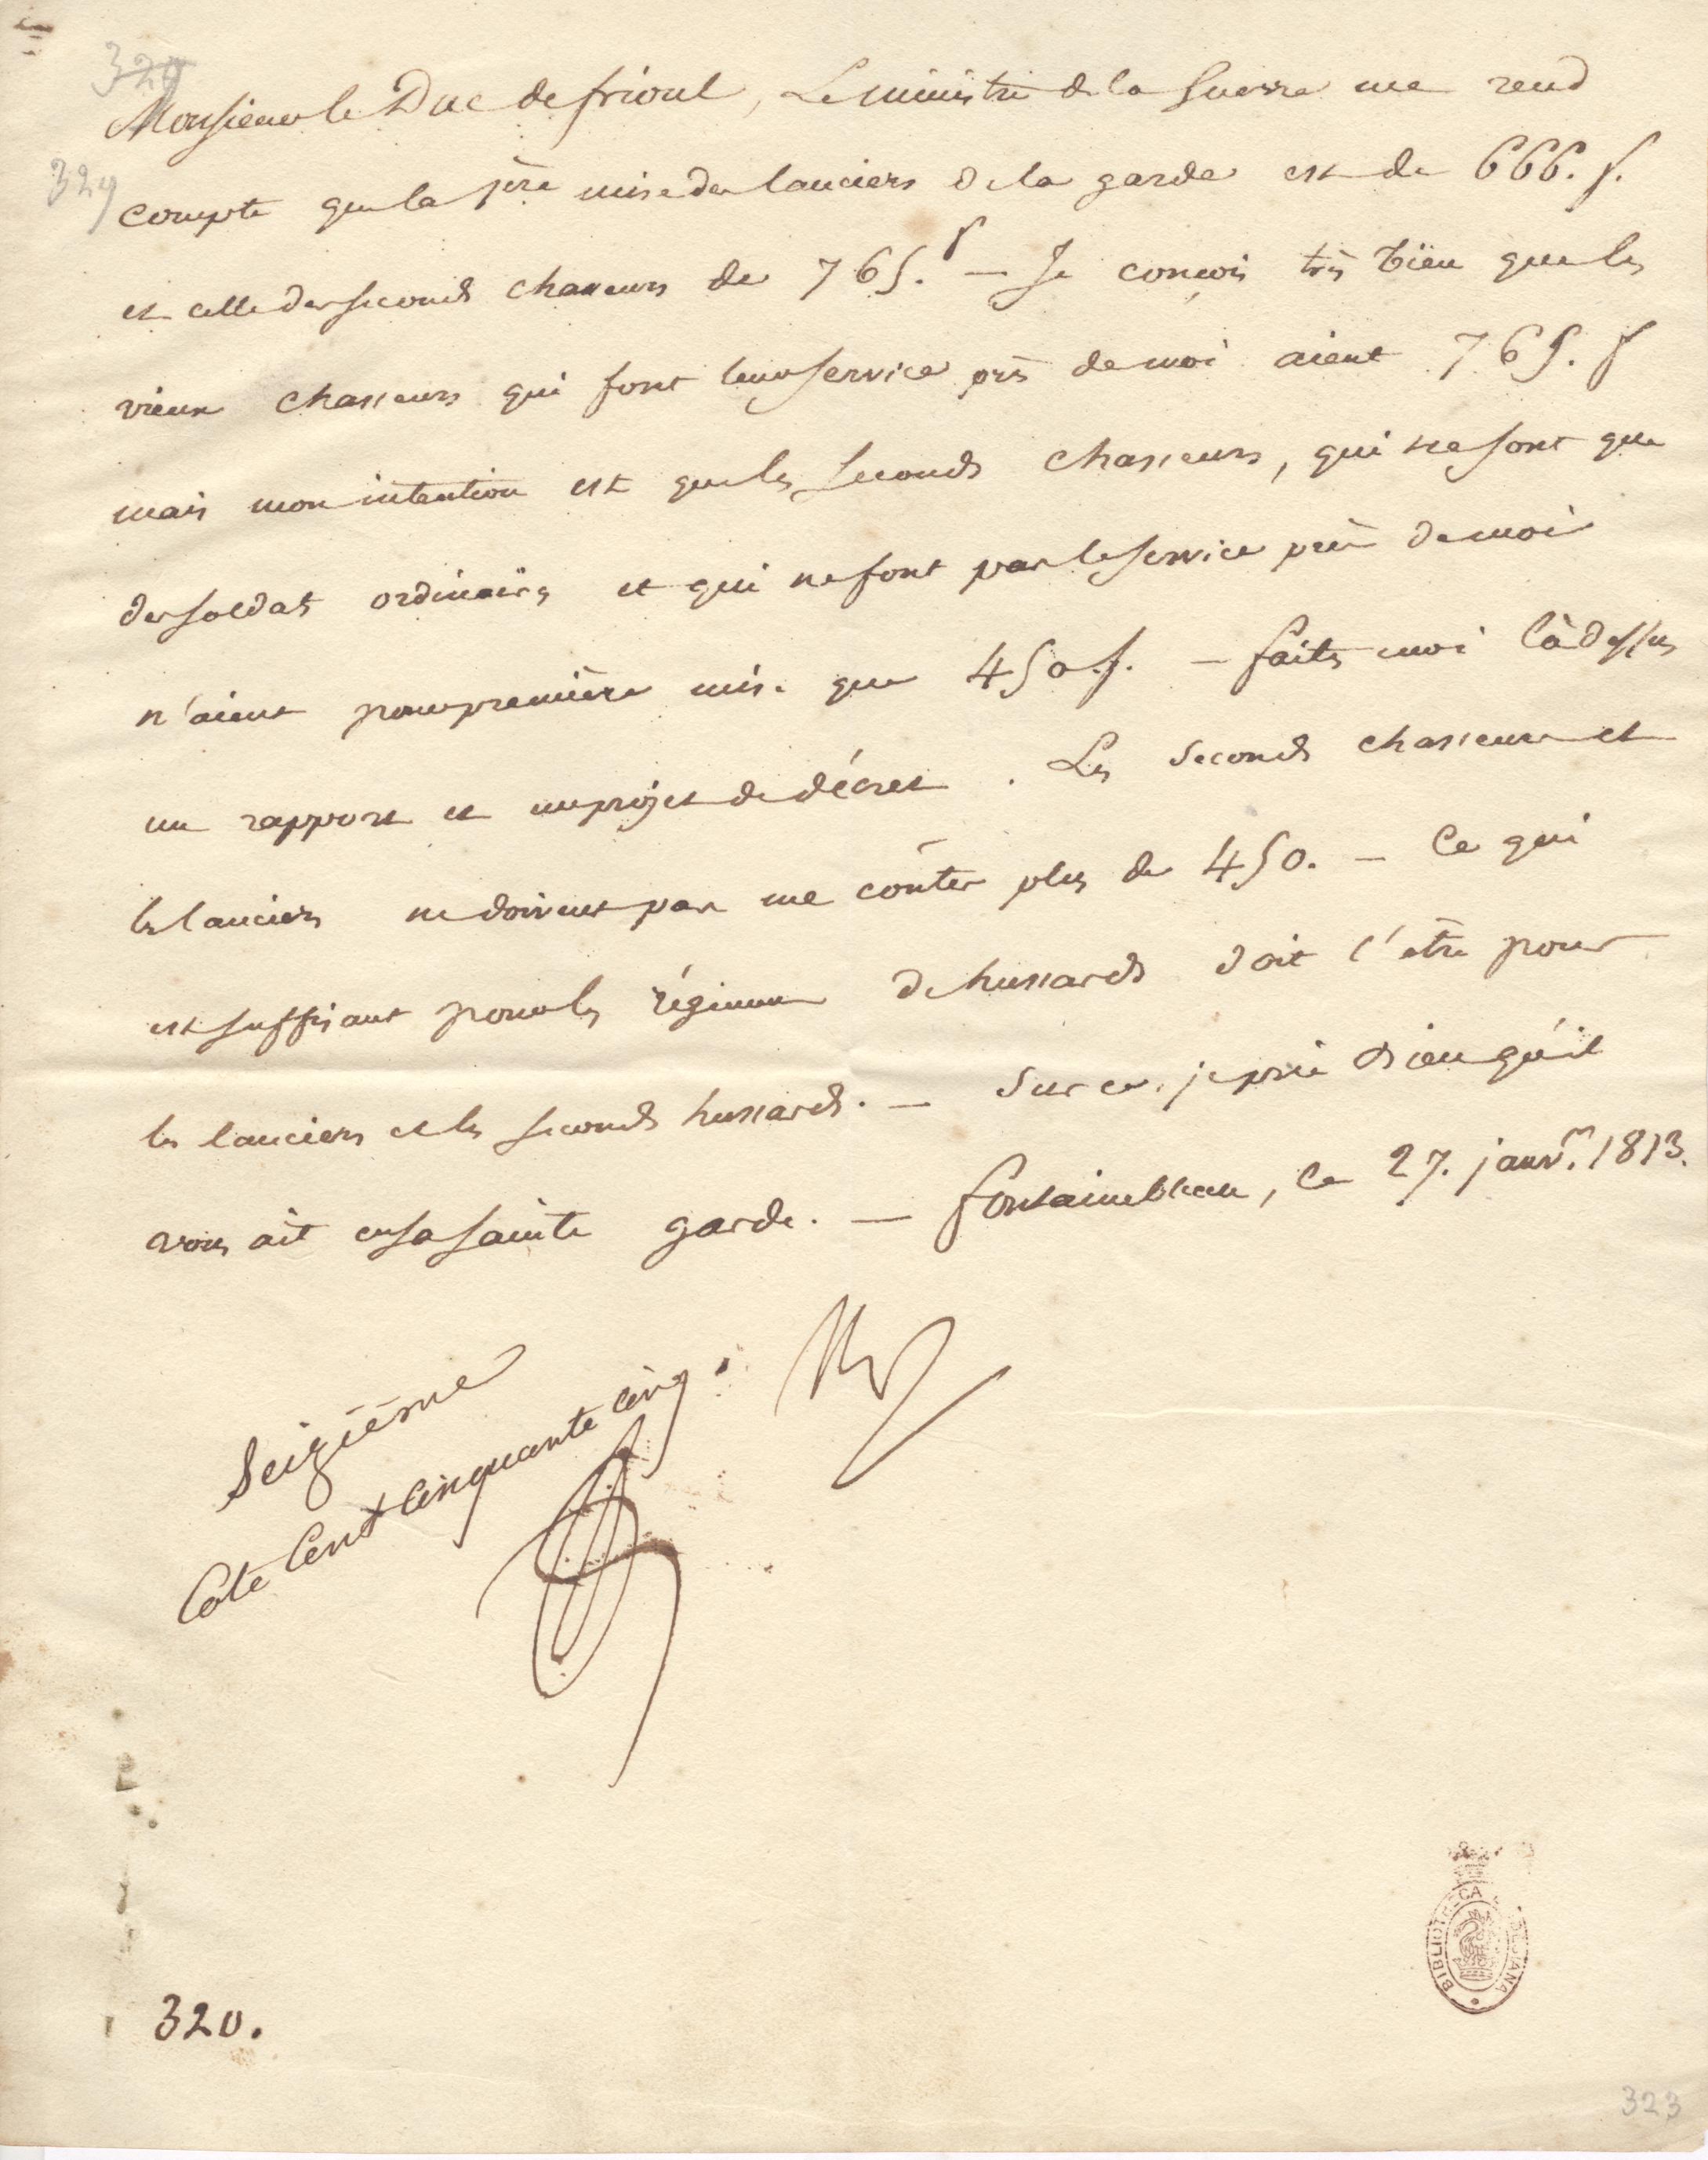 329
Monsieur le Duc de frioul, Le ministre de la Guerre me rend
329
compte que la 1ère mise des lanciers de la garde est de 666. f.
et celle des seconds chasseurs de 765. f — Je conçois très bien que les
vieux chasseurs qui font leur service près de moi aient 765. f
mais mon intention est que les seconds chasseurs, qui ne sont que
des soldats ordinaires et qui ne font pas le service près de moi
n'aient pour première mise que 450 f. — faites moi là dessus
un rapport et un projet de décret. Les seconds chasseurs et
les lanciers ne doivent pas me coûter plus de 450. — Ce qui
est suffisant pour les régimens de hussards doit l'être pour
les lanciers et les seconds hussards. — Sur ce, je prie Dieu qu'il
vous ait en sa sainte garde. — fontainebleau, le 27. janvr. 1813.
Seizième
Cote Cent Cinquante cinq.
BIBLIOTECA
320.
323